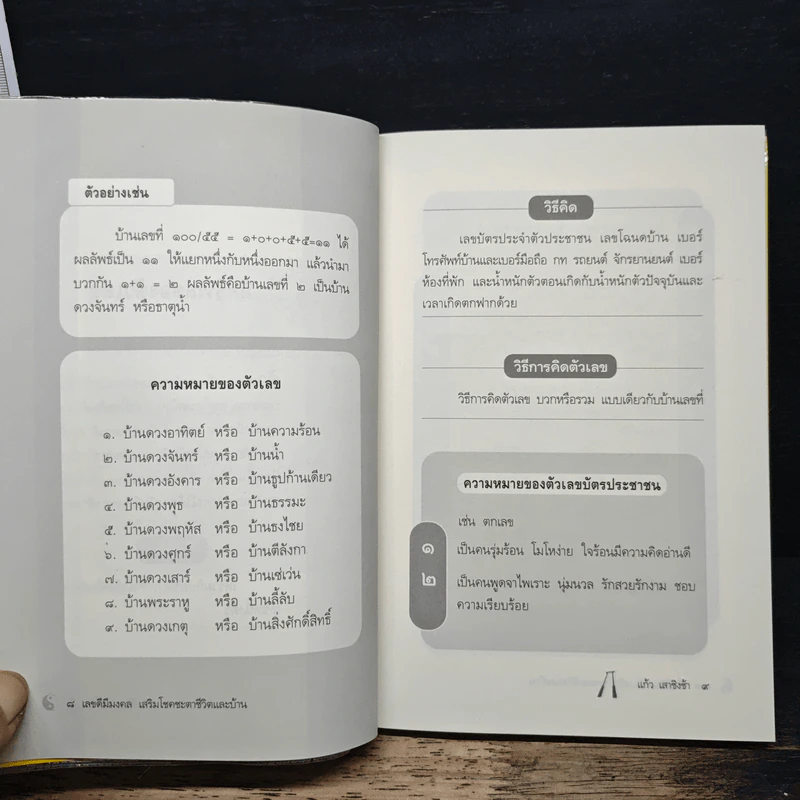 ตัวอย่างเช่น
บ้านเลขที่ ๑๐๐/๕๕ = ๑+๐+๐+๕+๕=๑๑ ได้
ผลลัพธ์เป็น ๑๑ ให้แยกหนึ่งกับหนึ่งออกมา แล้วนำมา
บวกกัน ๑+๑ = ๒ ผลลัพธ์คือบ้านเลขที่ ๒ เป็นบ้าน
ดวงจันทร์ หรือธาตุน้ำ
ความหมายของตัวเลข
๑. บ้านดวงอาทิตย์ หรือ บ้านความร้อน
๒. บ้านดวงจันทร์ หรือ บ้านน้ำ
๓. บ้านดวงอังคาร หรือ บ้านธูปก้านเดียว
๔. บ้านดวงพุธ หรือ บ้านธรรมะ
๕. บ้านดวงพฤหัส หรือ บ้านธงไชย
๖. บ้านดวงศุกร์ หรือ บ้านตีลังกา
๗. บ้านดวงเสาร์ หรือ บ้านเซ่เว่น
๘. บ้านพระราหู หรือ บ้านลี้ลับ
๙. บ้านดวงเกตุ หรือ บ้านสิ่งศักดิ์สิทธิ์
๘ เลขดีมีมงคล เสริมโชคชะตาชีวิตและบ้าน
วิธีคิด
เลขบัตรประจำตัวประชาชน เลขโฉนดบ้าน เบอร์
โทรศัพท์บ้านและเบอร์มือถือ กท รถยนต์ จักรยานยนต์ เบอร์
ห้องที่พัก และน้ำหนักตัวตอนเกิดกับน้ำหนักตัวปัจจุบันและ
เวลาเกิดตกฟากด้วย
วิธีการคิดตัวเลข
วิธีการคิดตัวเลข บวกหรือรวม แบบเดียวกับบ้านเลขที่
ความหมายของตัวเลขบัตรประชาชน
เช่น ตกเลข
๑ เป็นคนรุ่มร้อน โมโหง่าย ใจร้อนมีความคิดอ่านดี
๒ เป็นคนพูดจาไพเราะ นุ่มนวล รักสวยรักงาม ชอบ
ความเรียบร้อย
แก้ว เสาชิงช้า ๙